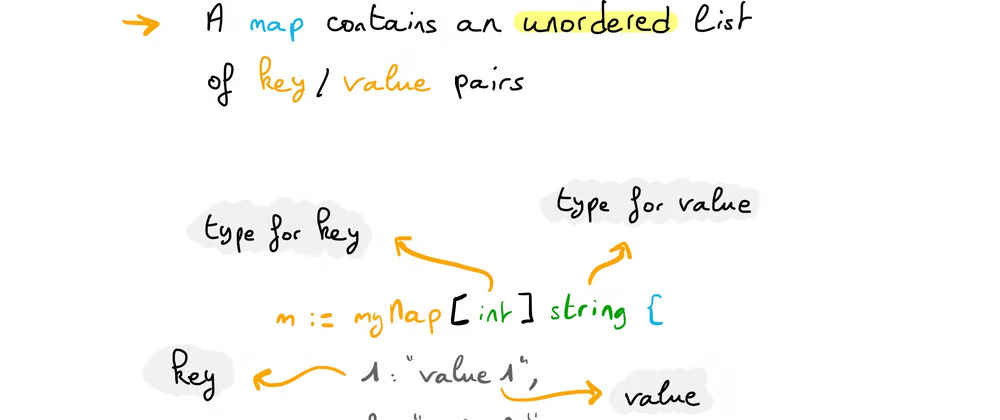 → A map contains an unordered list
of key / value pairs
type for value
type for key
m := myMap [int] string {
key
1 : "value 1",
value